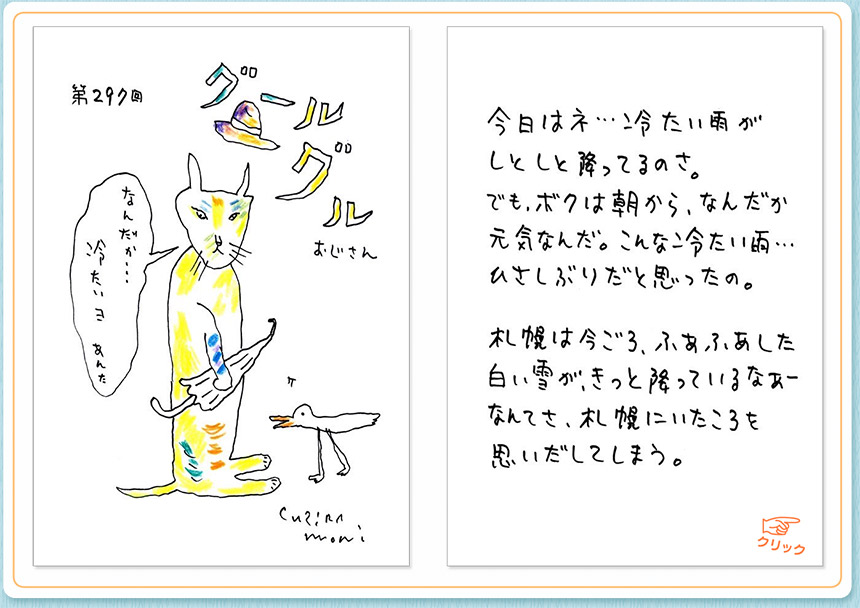 第297回
グールグル
おじさん
なんだか…
冷たいヨ あんた
今日はネ…冷たい雨が
しとしと降ってるのさ。
でも、ボクは朝から、なんだか
元気なんだ。こんな冷たい雨…
ひさしぶりだと思ったの。
札幌は今ごろ、ふあふあした
白い雪が、きっと降っているなぁー
なんてさ、札幌にいたころを
思いだしてしまう。
クリック